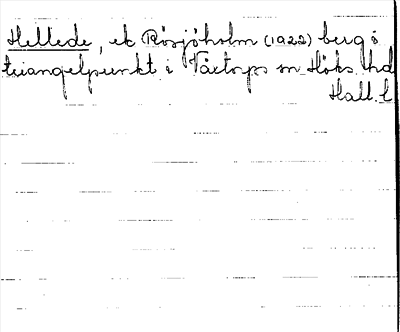 Hellede, ek Rösjöholm (1922) berg o
triangelpunkt i Våxtorps sn Höks hd
Hall. l.